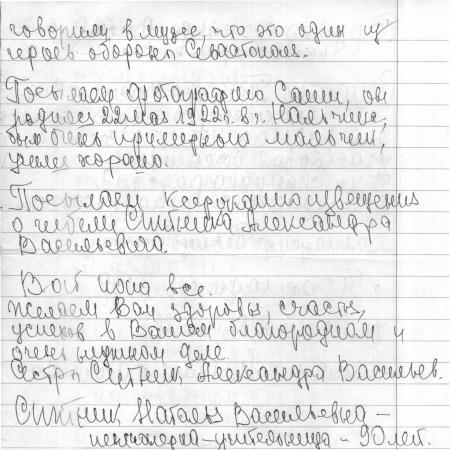 говорили в музее, что это один из
героев обороны Севастополя.
Посылаем фотографию Саши, он
родился 22 мая 1922 г. в г. Нальчике,
был очень примерного мальчик,
учился хорошо.
Посылаем ксерокопию извещения
о гибели Ситника Александра
Васильевича.
Вот пока все.
Желаем Вам здоровья, счастья,
успехов в Вашем благородном и
очень нужном деле.
Сестры Ситник Александра Васильев.
Ситник Наталья Васильевна –
пенсионерка – учительница – 90 лет.